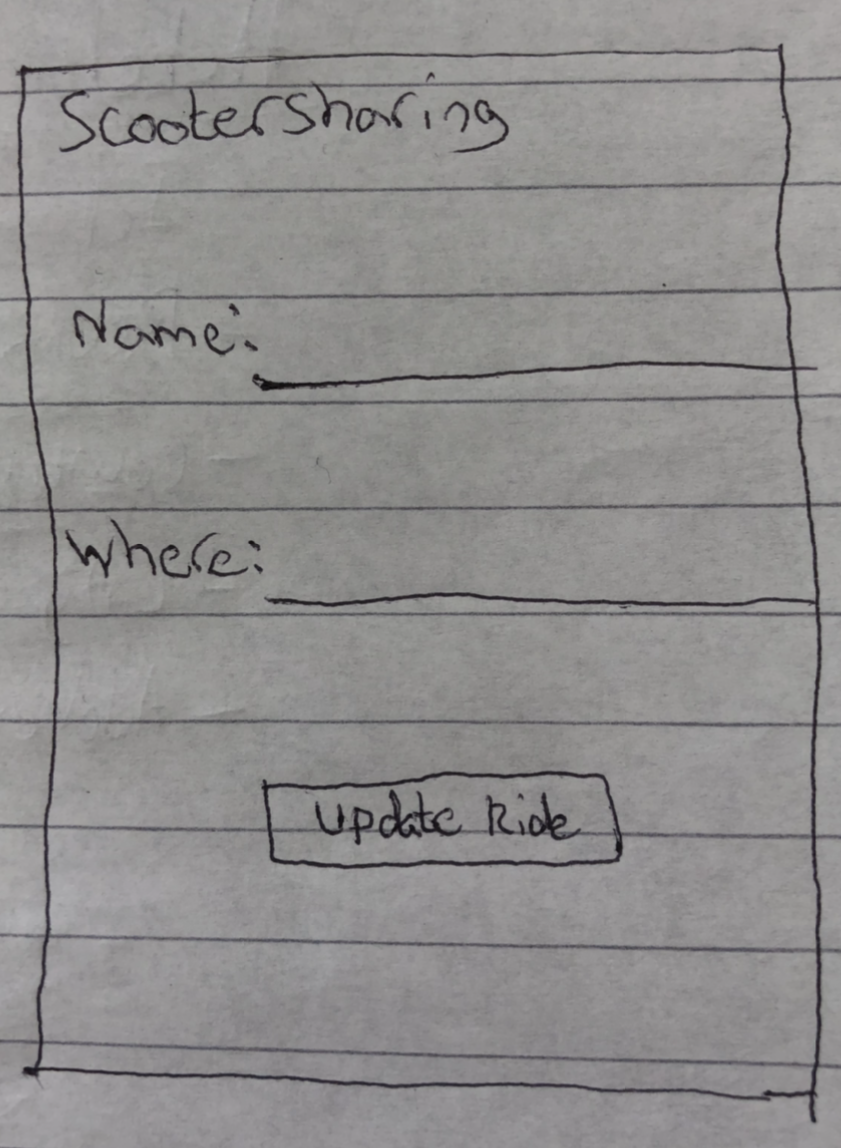 ScooterSharing
Name:
Where:
Update Ride